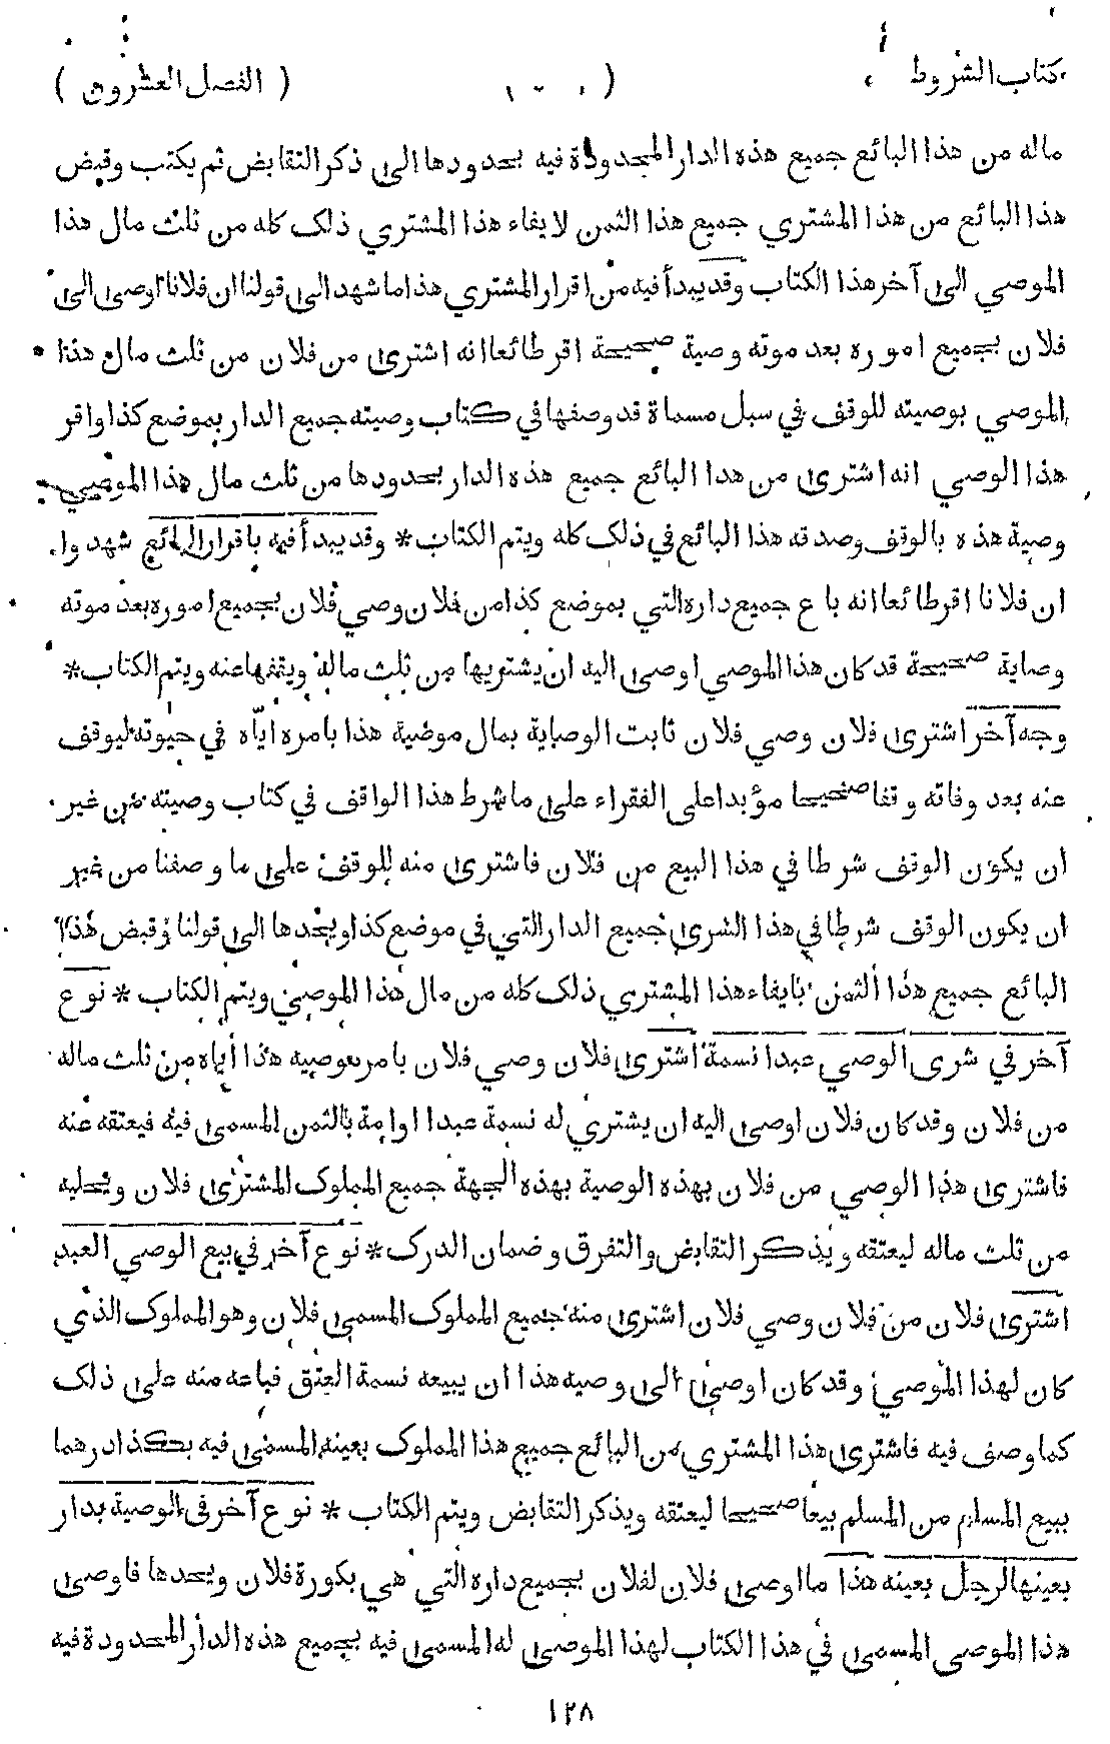 كتاب الشروط ( ) ( الفصل العشرون )
ماله من هذا البائع جميع هذه الدار المحدودة فيه بحدودها الى ذكر التقابض ثم يكتب وقبض
هذا البائع من هذا المشتري جميع هذا الثمن لا يفاء هذا المشتري ذلك كله من ثلث مال هذا
الموصي الى آخر هذا الكتاب وقد يبدأ فيه من اقرار المشتري هذا ما شهد الى قولنا ان فلانا اوصى الى
فلان بجميع اموره بعد موته وصية صحيحة اقر طائعا انه اشترى من فلان من ثلث مال هذا
الموصي بوصيته للوقف في سبل مسماة قد وصفها في كتاب وصيته جميع الدار بموضع كذا واقر
هذا الوصي انه اشترى من هذا البائع جميع هذه الدار بحدودها من ثلث مال هذا الموصي
وصية هذه بالوقف وصدقه هذا البائع في ذلك كله ويتم الكتاب * وقد يبدأ فيه باقرار البائع شهدوا
ان فلانا اقر طائعا انه باع جميع داره التي بموضع كذا من فلان وصي فلان بجميع اموره بعد موته
وصاية صحيحة قد كان هذا الموصي اوصى اليه ان يشتريها من ثلث ماله ويقفها عنه ويتم الكتاب *
وجه آخر اشترى فلان وصي فلان ثابت الوصاية بمال موصيه هذا بامره اياه في حيوته ليوقف
عنه بعد وفاته وقفا صحيحا مؤبدا على الفقراء على ما شرط هذا الواقف في كتاب وصيته من غير
ان يكون الوقف شرطا في هذا البيع من فلان فاشترى منه للوقف على ما وصفنا من غير
ان يكون الوقف شرطا في هذا الشرى جميع الدار التي في موضع كذا ويحدها الى قولنا وقبض هذا
البائع جميع هذا الثمن بايفاء هذا المشتري ذلك كله من مال هذا الموصي ويتم الكتاب * نوع
آخر في شرى الوصي عبدا نسمة اشترى فلان وصي فلان بامر موصيه هذا اياه من ثلث ماله
من فلان وقد كان فلان اوصى اليه ان يشتري له نسمة عبدا او امة بالثمن المسمى فيه فيعتقه عنه
فاشترى هذا الوصي من فلان بهذه الوصية بهذه الجهة جميع المملوك المشترى فلان ويحليه
من ثلث ماله ليعتقه ويذكر التقابض والتفرق وضمان الدرك * نوع آخر في بيع الوصي العبد
اشترى فلان من فلان وصي فلان اشترى منه جميع المملوك المسمى فلان وهو المملوك الذي
كان لهذا الموصي وقد كان اوصى الى وصيه هذا ان يبيعه نسمة العتق فباعه منه على ذلك
كما وصف فيه فاشترى هذا المشتري من البائع جميع هذا المملوك بعينه المسمى فيه بكذا درهما
ببيع المسلم من المسلم بيعا صحيحا ليعتقه ويذكر التقابض ويتم الكتاب * نوع آخر في الوصية بدار
بعينها لرجل بعينه هذا ما اوصى فلان لفلان بجميع داره التي هي بكورة فلان ويحدها فاوصى
هذا الموصي المسمى في هذا الكتاب لهذا الموصى له المسمى فيه بجميع هذه الدار المحدودة فيه
١٢٨